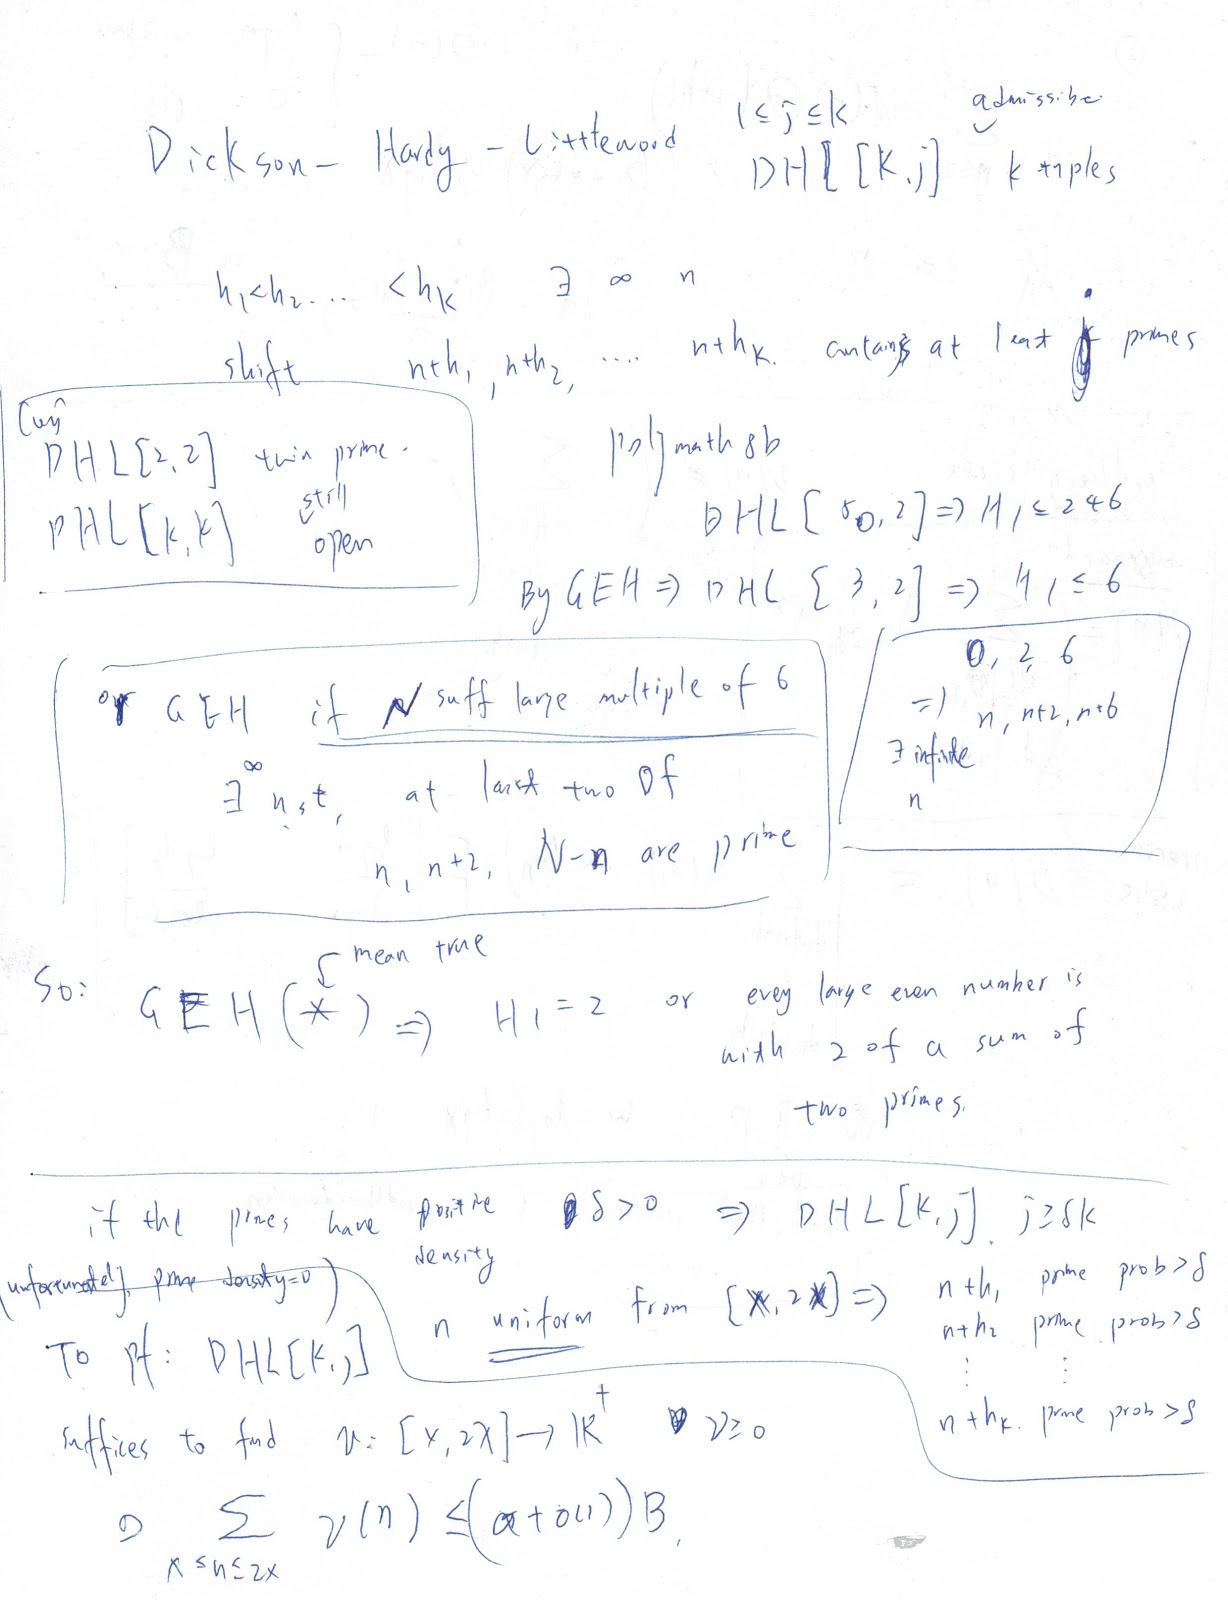 Dickson - Hardy - Littlewood 1 ≤ j ≤ k admissible
DHL [k, j] k tuples
h₁<h₂.... <h_k ∃ ∞ n
shift n+h₁, n+h₂, .... n+h_k. contains at least j primes
Conj
DHL[2,2] twin prime.
DHL[k,k] still open
polymath 8b
DHL[50,2] ⇒ H₁ ≤ 246
By GEH ⇒ DHL [3,2] ⇒ H₁ ≤ 6
0, 2, 6
⇒ n, n+2, n+6
∃ infinite
n
or GEH if N suff large multiple of 6
∃^∞ n s.t, at least two of
n, n+2, N-n are prime
So: GEH(*) ⇒ H₁ = 2 or every large even number is
mean true
with 2 of a sum of
two primes.
if the primes have positive density δ>0 ⇒ DHL[k,j], j≥δk
(unforeunately, prime density=0)
n uniform from [x, 2x] ⇒ n+h₁ prime prob>δ
n+h₂ prime prob>δ
⋮ ⋮
n+h_k. prime prob>δ
To pf: DHL[k,j]
suffices to find ν: [x, 2x] → R⁺ ν≥0
① ∑_{x≤n≤2x} ν(n) ≤ (α+o(1))B,